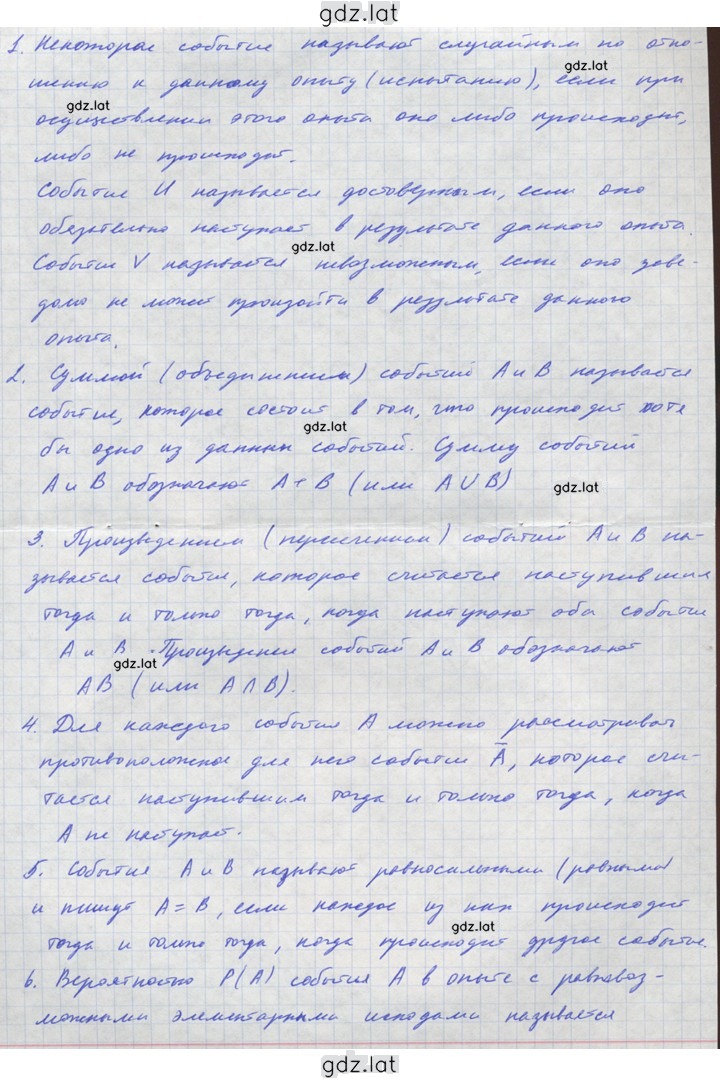 gdz.lat
1. Некоторое событие называют случайным по отно-
шению к данному опыту (испытанию), если при
gdz.lat
gdz.lat
осуществлении этого опыта оно либо происходит,
либо не происходит.
Событие И называется достоверным, если оно
обязательно наступает в результате данного опыта.
gdz.lat
Событие V называется невозможным, если оно заве-
домо не может произойти в результате данного
опыта.
2. Суммой (объединением) событий А и В называется
событие, которое состоит в том, что происходит хотя
gdz.lat
бы одно из данных событий. Сумму событий
А и В обозначают А + В (или A ∪ B)
gdz.lat
3. Произведением (пересечением) событий А и В на-
зывается событие, которое считается наступившим
тогда и только тогда, когда наступают оба события
А и В. Произведение событий А и В обозначают
gdz.lat
АВ (или A ∩ B).
4. Для каждого события А можно рассматривать
противоположное для него событие Ā, которое счи-
тается наступившим тогда и только тогда, когда
А не наступает.
5. События А и В называют равносильными (равными)
и пишут А = В, если каждое из них происходит
gdz.lat
тогда и только тогда, когда происходит другое событие.
6. Вероятностью Р(А) события А в опыте с равновоз-
можными элементарными исходами называется
gdz.lat